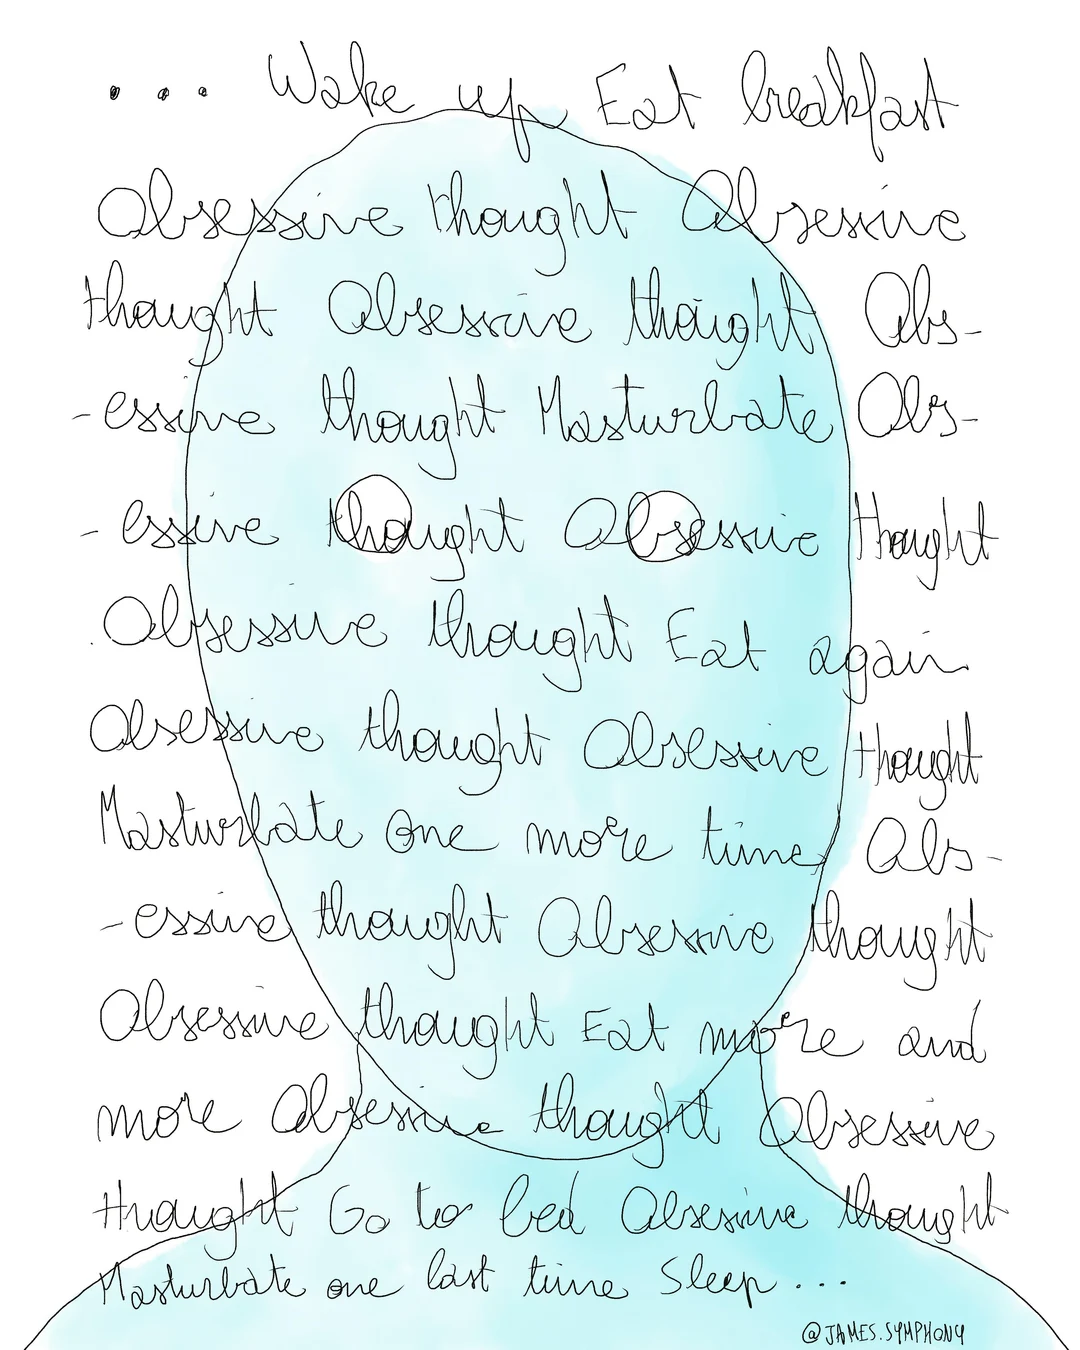 ... Wake up Eat breakfast
Obsessive thought Obsessive
thought Obsessive thought Obs-
-essive thought Masturbate Obs-
-essive thought Obsessive thought
Obsessive thought Eat again
Obsessive thought Obsessive thought
Masturbate one more time Obs-
-essive thought Obsessive thought
Obsessive thought Eat more and
more Obsessive thought Obsessive
thought Go to bed Obsessive thought
Masturbate one last time Sleep...
@JAMES.SYMPHONY